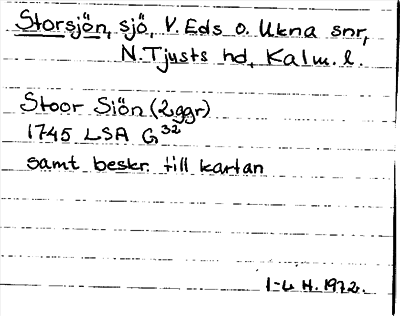 Storsjön, sjö, V. Eds o. Ukna snr,
N. Tjusts hd, Kalm. l.
Stoor Siön (2 ggr)
1745 LSA G 32
samt beskr. till kartan
I-L H. 1972.